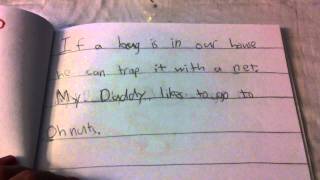 If a bug is in our house
he can trap it with a net.
My Daddy likes to go to
Ohnuts.